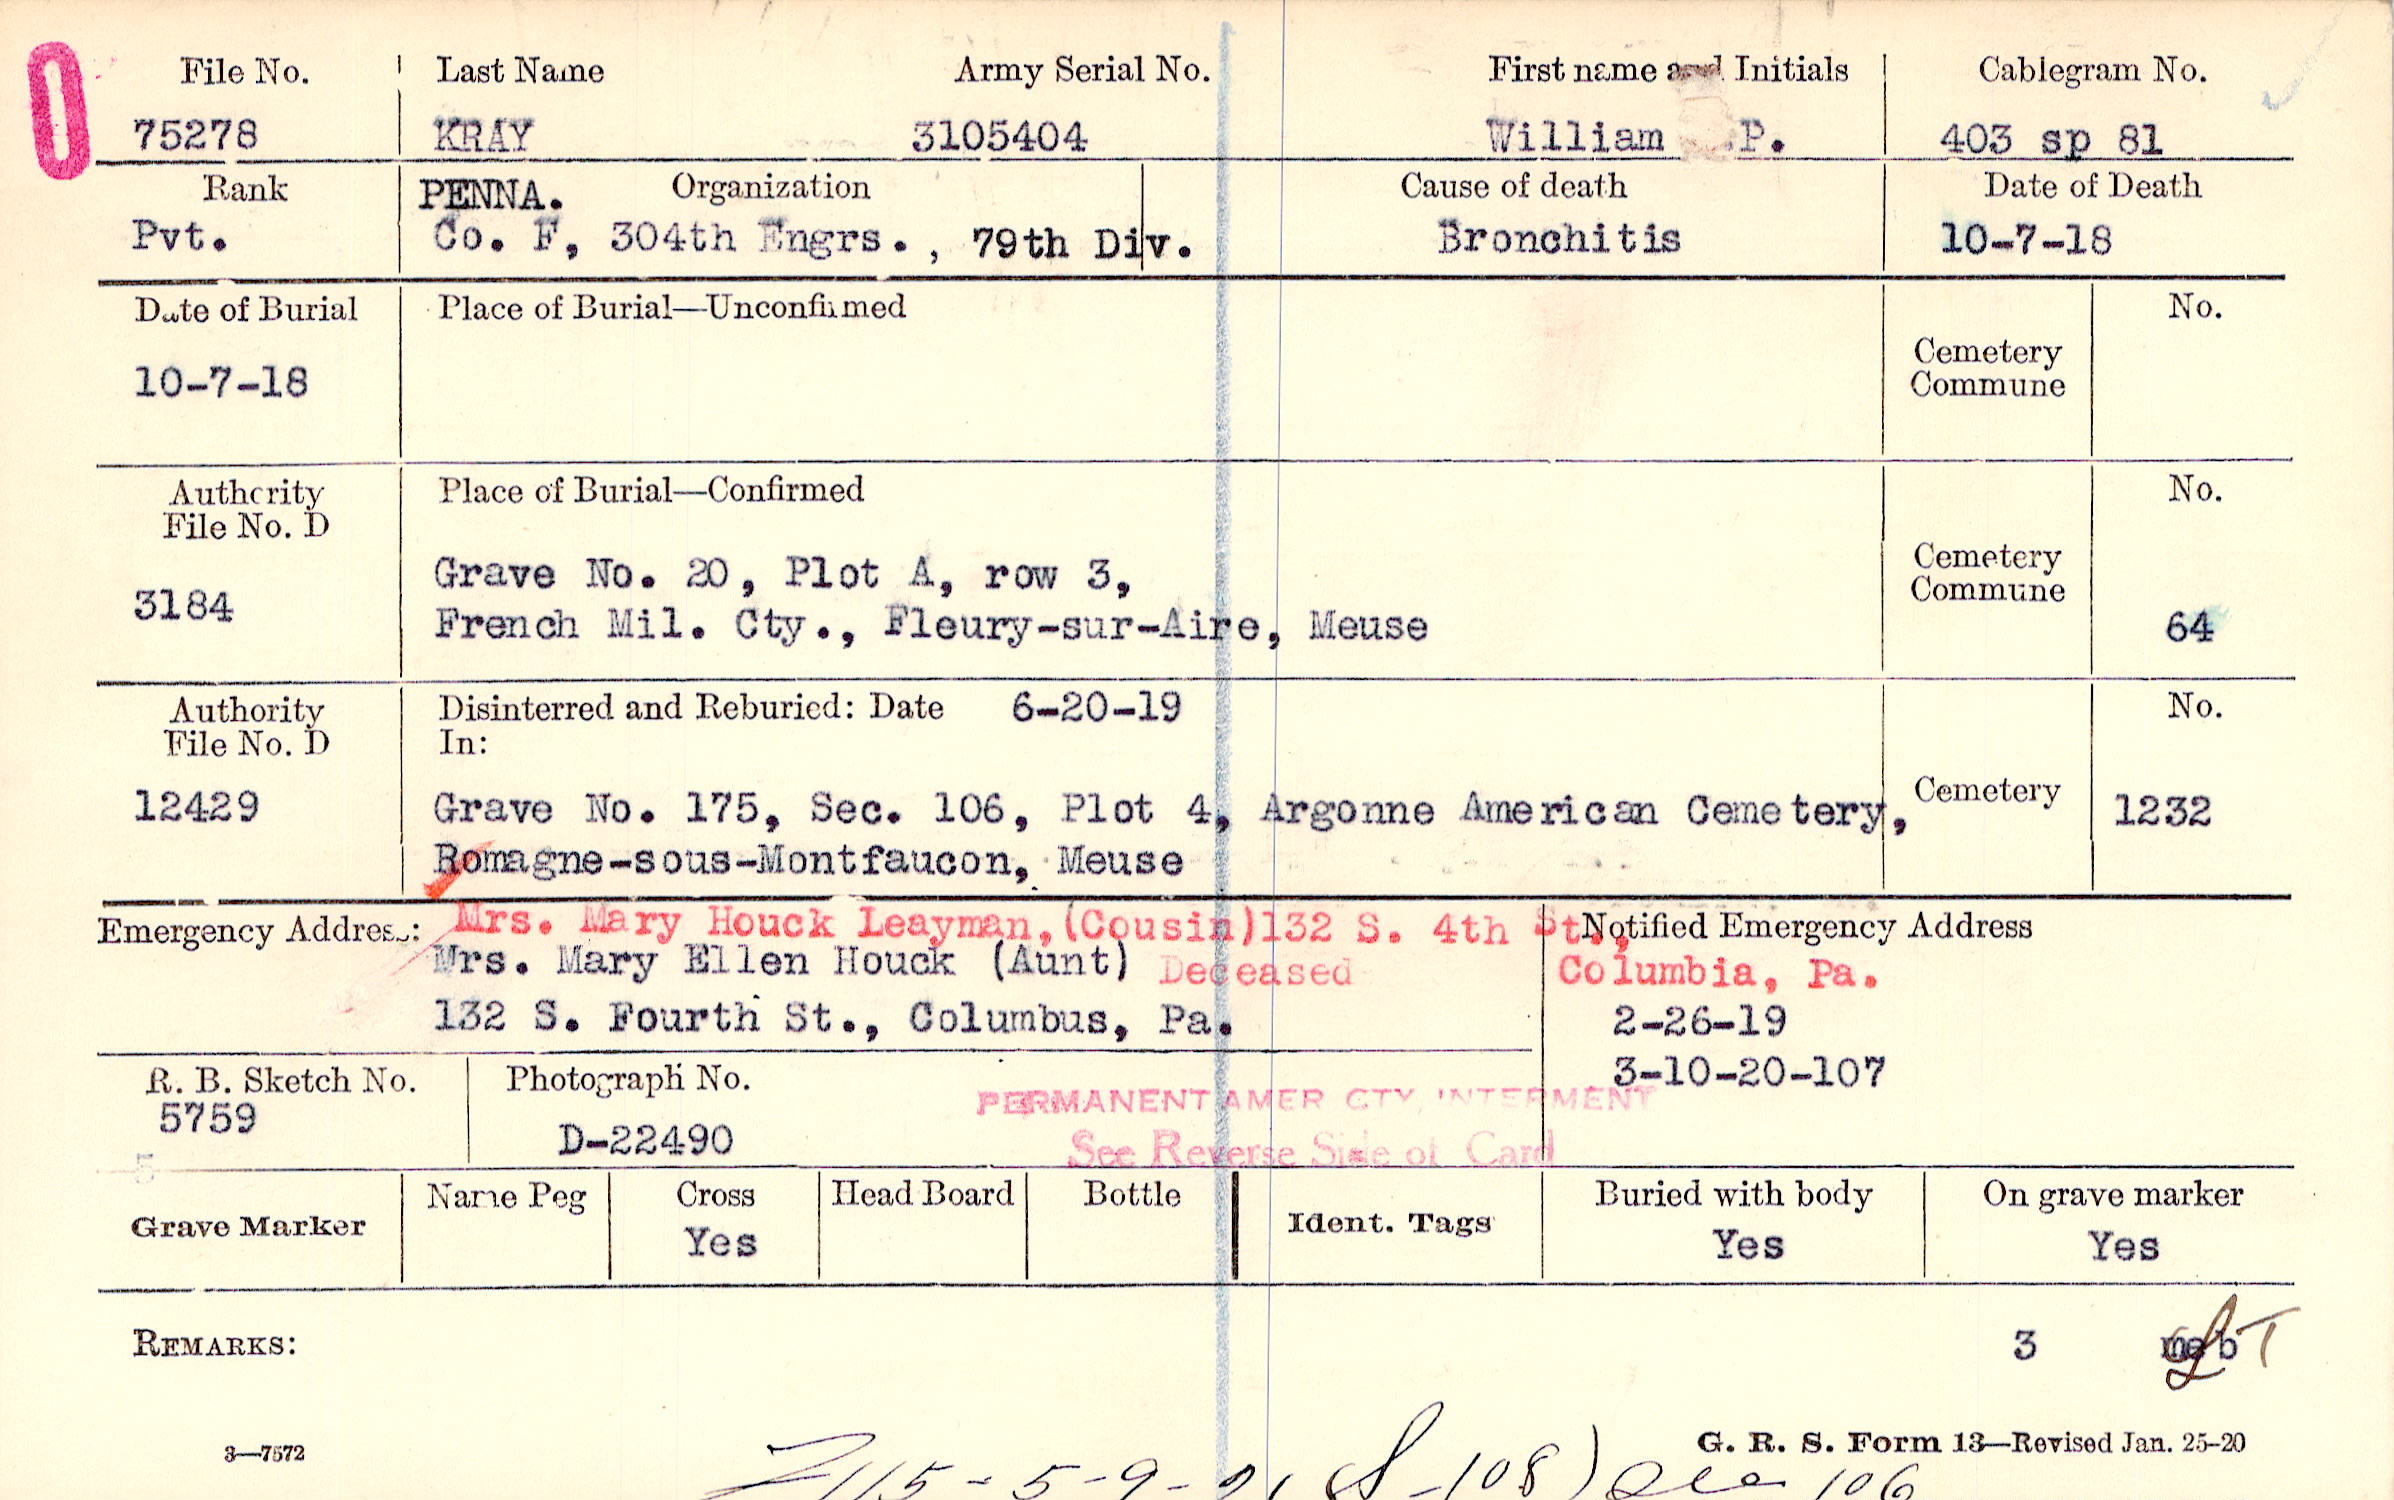 0
File No. Last Name Army Serial No. First name and Initials Cablegram No.
75278 KRAY 3105404 William P. 403 sp 81
Rank PENNA. Organization Cause of death Date of Death
Pvt. Co. F, 304th Engrs., 79th Div. Bronchitis 10-7-18
Date of Burial Place of Burial—Unconfirmed No.
Cemetery
Commune
10-7-18
Authority Place of Burial—Confirmed No.
File No. D
Cemetery
Commune
Grave No. 20, Plot A, row 3,
3184
French Mil. Cty., Fleury-sur-Aire, Meuse 64
Authority Disinterred and Reburied: Date 6-20-19 No.
File No. D In:
12429 Grave No. 175, Sec. 106, Plot 4, Argonne American Cemetery, Cemetery 1232
Romagne-sous-Montfaucon, Meuse
Emergency Address: Mrs. Mary Houck Leayman, (Cousin) 132 S. 4th St., Notified Emergency Address
Mrs. Mary Ellen Houck (Aunt) Deceased Columbia, Pa.
132 S. Fourth St., Columbus, Pa. 2-26-19
3-10-20-107
R. B. Sketch No. Photograph No.
5759 D-22490
PERMANENT AMER CTY. INTERMENT
See Reverse Side of Card
5
Grave Marker Name Peg Cross Head Board Bottle Ident. Tags Buried with body On grave marker
Yes Yes Yes
REMARKS: 3 meb
3—7572 G. R. S. Form 13—Revised Jan. 25-20
115-5-9-21 (S-108) See 106